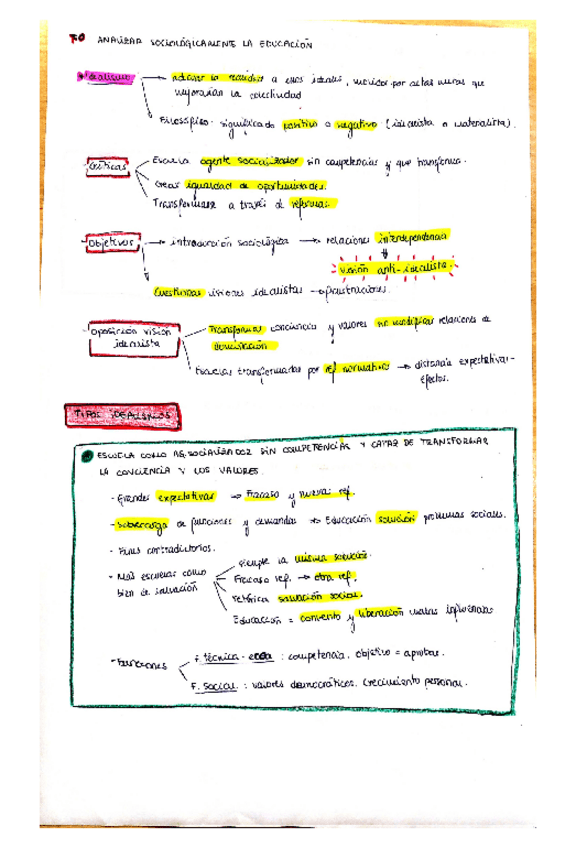 T0 ANALIZAR SOCIOLÓGICAMENTE LA EDUCACIÓN
Idealismo → adecuar la realidad a unos ideales, movidos por altas miras que
mejorarían la colectividad
Filosófico - significado positivo o negativo (idealista o materialista).
Críticas Escuela agente socializador sin competencias y que transforma.
Crear igualdad de oportunidades.
Transformarse a través de reformas.
Objetivos → introducción sociológica → relaciones interdependencia
visión anti-idealista.
Cuestionar visiones idealistas → frustraciones.
Oposición visión
idealista
Transformar conciencia y valores no modificar relaciones de
dominación
Escuelas transformadas por ref normativo → distancia expectativas-
efectos.
TIPOS IDEALISMOS
ESCUELA COMO AG. SOCIALIZADOR SIN COMPETENCIAS Y CAPAZ DE TRANSFORMAR
LA CONCIENCIA Y LOS VALORES.
- Grandes expectativas → Fracaso y nueva ref.
- Sobrecarga de funciones y demandas → Educación solución problemas sociales.
- Fines contradictorios.
- Más escuelas como
bien de salvación
siempre la misma solución.
Fracaso ref. → otra ref.
Retórica salvación social.
Educación = convento y liberación malas influencias
- Funciones
F. técnica-eco : competencia. objetivo = aprobar.
F. Social : valores democráticos. Crecimiento personal.